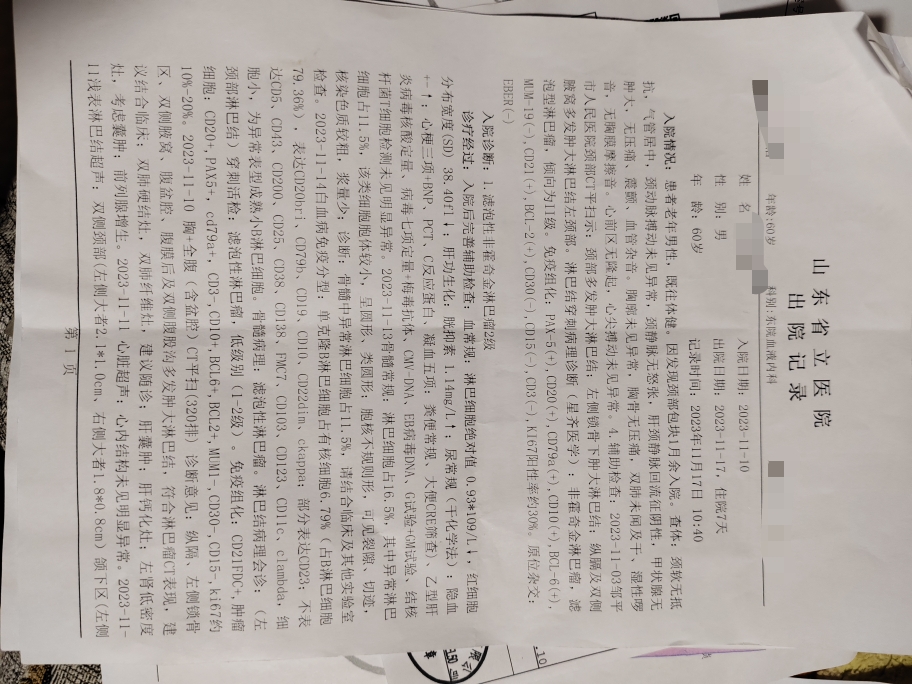 山东省立医院
出院记录
年龄:60岁 科别:东院血液内科
姓 名 入院日期: 2023-11-10
性 别: 男 出院日期: 2023-11-17, 住院7天
年 龄: 60岁 记录时间: 2023年11月17日 10:40
入院情况: 患者老年男性, 既往体健。因发现颈部包块1月余入院。查体: 颈软无抵
抗, 气管居中, 颈动脉搏动未见异常, 颈静脉无怒张, 肝颈静脉回流征阴性, 甲状腺无
肿大, 无压痛、震颤、血管杂音。胸廓未见异常, 胸骨无压痛, 双肺未闻及干、湿性啰
音, 无胸膜摩擦音。心前区无隆起, 心尖搏动未见异常, 4.辅助检查: 2023-11-03邹平
市人民医院颈部CT平扫示: 颈部多发肿大淋巴结; 左侧锁骨下肿大淋巴结; 纵膈及双侧
腋窝多发肿大淋巴结左颈部。淋巴结穿刺病理诊断 (星齐医学): 非霍奇金淋巴瘤, 滤
泡型淋巴瘤, 倾向为II级, 免疫组化: PAX-5(+), CD20(+), CD79a(+), CD10(+), BCL-6(+),
MUM-1(-), CD21(+), BCL-2(+), CD30(-), CD15(-), CD3(-), KI67阳性率约30%。原位杂交:
EBER(-)
入院诊断: 1.滤泡性非霍奇金淋巴瘤2级
诊疗经过: 入院后完善辅助检查: 血常规: 淋巴细胞绝对值 0.93*109/L↓, 红细胞
分布宽度(SD) 38.40fl↓; 肝功生化: 胱抑素 1.14mg/L↑; 尿常规 (干化学法): 隐血
+-↑; 心梗三项+BNP、PCT、C反应蛋白、凝血五项; 粪便常规、大便CRE筛查)、乙型肝
炎病毒核酸定量、病毒七项定量+梅毒抗体、CMV-DNA、EB病毒DNA、G试验+GM试验、结核
杆菌T细胞检测未见明显异常。2023-11-13骨髓常规: 淋巴细胞占16.5%, 其中异常淋巴
细胞占11.5%, 该类细胞胞体较小, 呈圆形、类圆形; 胞核不规则形, 可见裂隙、切迹,
核染色质较粗, 浆量少; 诊断: 骨髓中异常淋巴细胞占11.5%, 请结合临床及其他实验室
检查。2023-11-14白血病免疫分型: 单克隆B淋巴细胞占有核细胞6.79% (占B淋巴细胞
79.36%), 表达CD20bri、CD79b、CD19、CD10、CD22dim、ckappa; 部分表达CD23; 不表
达CD5、CD43、CD200、CD25、CD38、CD138、FMC7、CD103、CD123、CD11c、clambda, 细
胞小, 为异常表型成熟小B淋巴细胞。骨髓病理: 滤泡性淋巴瘤。淋巴结病理会诊: (左
颈部淋巴结) 穿刺活检: 滤泡性淋巴瘤, 低级别 (1-2级)。免疫组化: CD21FDC+, 肿瘤
细胞: CD20+, PAX5+, cd79a+, CD3-, CD10+, BCL6+, BCL2+, MUM1-, CD30-, CD15-, ki67约
10%-20%。2023-11-10 胸+全腹 (含盆腔) CT平扫(320排) 诊断意见: 纵隔、左侧锁骨
区、双侧腋窝、腹盆腔、腹膜后及双侧腹股沟多发肿大淋巴结, 符合淋巴瘤CT表现, 建
议结合临床; 双肺硬结灶, 双肺纤维灶, 建议随诊; 肝囊肿; 肝钙化灶; 左肾低密度
灶, 考虑囊肿; 前列腺增生。2023-11-11 心脏超声: 心内结构未见明显异常。2023-11-
11浅表淋巴结超声: 双侧颈部(左侧大者2.1*1.0cm, 右侧大者1.8*0.8cm) 颌下区(左侧
第 1 页